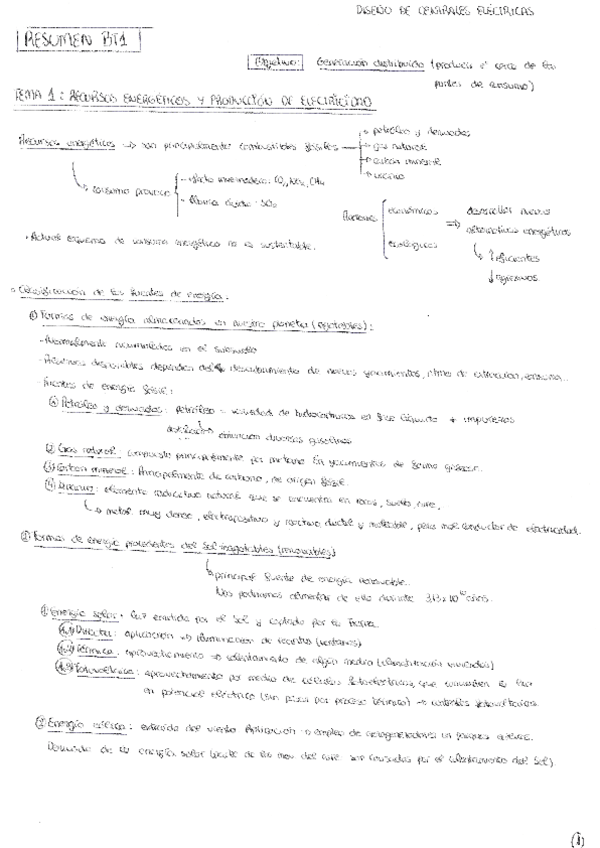 DISEÑO DE CENTRALES ELÉCTRICAS
RESUMEN BT1
Objetivo: Generación distribuida (producir e⁻ cerca de los
puntos de consumo)
TEMA 1: RECURSOS ENERGÉTICOS Y PRODUCCIÓN DE ELECTRICIDAD
Recursos energéticos → son principalmente combustibles fósiles
petróleo y derivados
gas natural
carbón mineral
uranio
consumo provoca
efecto invernadero: CO₂, NOx, CH₄
lluvia ácida: SO₂
Razones
económicas
ecológicas
⇒ desarrollar nuevas
alternativas energéticas
↑ eficientes
↓ agresivas
· Actual esquema de consumo energético no es sustentable.
· Clasificación de las fuentes de energía:
① Formas de energía almacenadas en nuestro planeta (agotables):
- Normalmente acumuladas en el subsuelo
- Reservas disponibles dependen del descubrimiento de nuevos yacimientos, ritmo de extracción, economía...
- Fuentes de energía fósil:
① Petróleo y derivados: petróleo = variedad de hidrocarburos en fase líquida + impurezas
destilación → obtención diversas gasolinas
② Gas natural: compuesto principalmente por metano. En yacimientos de forma gaseosa.
③ Carbón mineral: Principalmente de carbono, de origen fósil.
④ Uranio: elemento radiactivo natural que se encuentra en rocas, suelo, aire,
→ metal muy denso, electropositivo y reactivo dúctil y maleable, pero mal conductor de electricidad.
② Formas de energía procedentes del Sol inagotables (renovables)
principal fuente de energía renovable.
Nos podríamos alimentar de ella durante años.
① Energía solar: luz emitida por el Sol y captada por la Tierra.
1.1) Directa: aplicación → iluminación de recintos (ventanas)
1.2) Térmica: aprovechamiento → calentamiento de algún medio (climatización viviendas)
1.3) Fotovoltaica: aprovechamiento por medio de células fotoeléctricas, que convierten la luz
en potencial eléctrico (sin pasar por proceso térmico) → centrales fotovoltaicas.
② Energía eólica: extraída del viento. Aplicación → empleo de aerogeneradores en parques eólicos.
Derivada de la energía solar (parte de los mov. del aire son causados por el calentamiento del Sol).
(1)